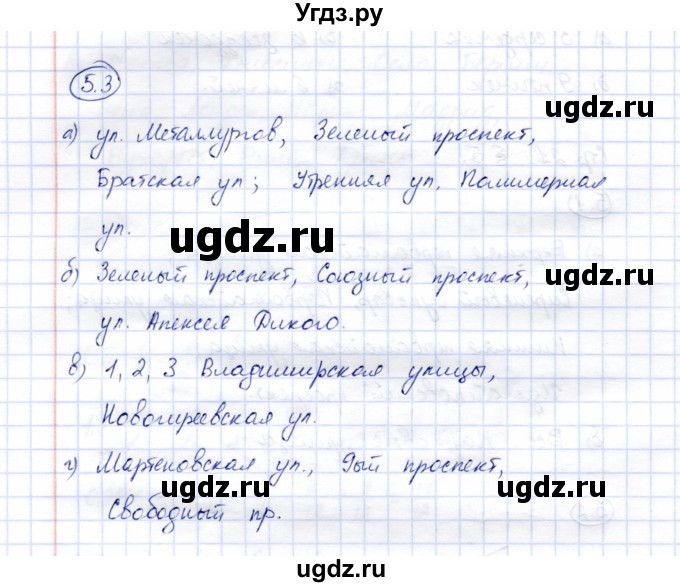 Угдз.ру
5.3
а) ул. Металлургов, Зеленый проспект,
ugdz.ru
Братская ул; Утренняя ул, Полимерная
ул.
ugdz.ru
ugdz.ru
б) Зеленый проспект, Союзный проспект,
ул. Алексея Дикого.
ugdz.ru
в) 1, 2, 3 Владимирская улицы,
Новогиреевская ул.
ugdz.ru
г) Мартеновская ул., 9ый проспект,
ugdz.ru
ugdz.ru
Свободный пр.
ugdz.ru
ugdz.ru